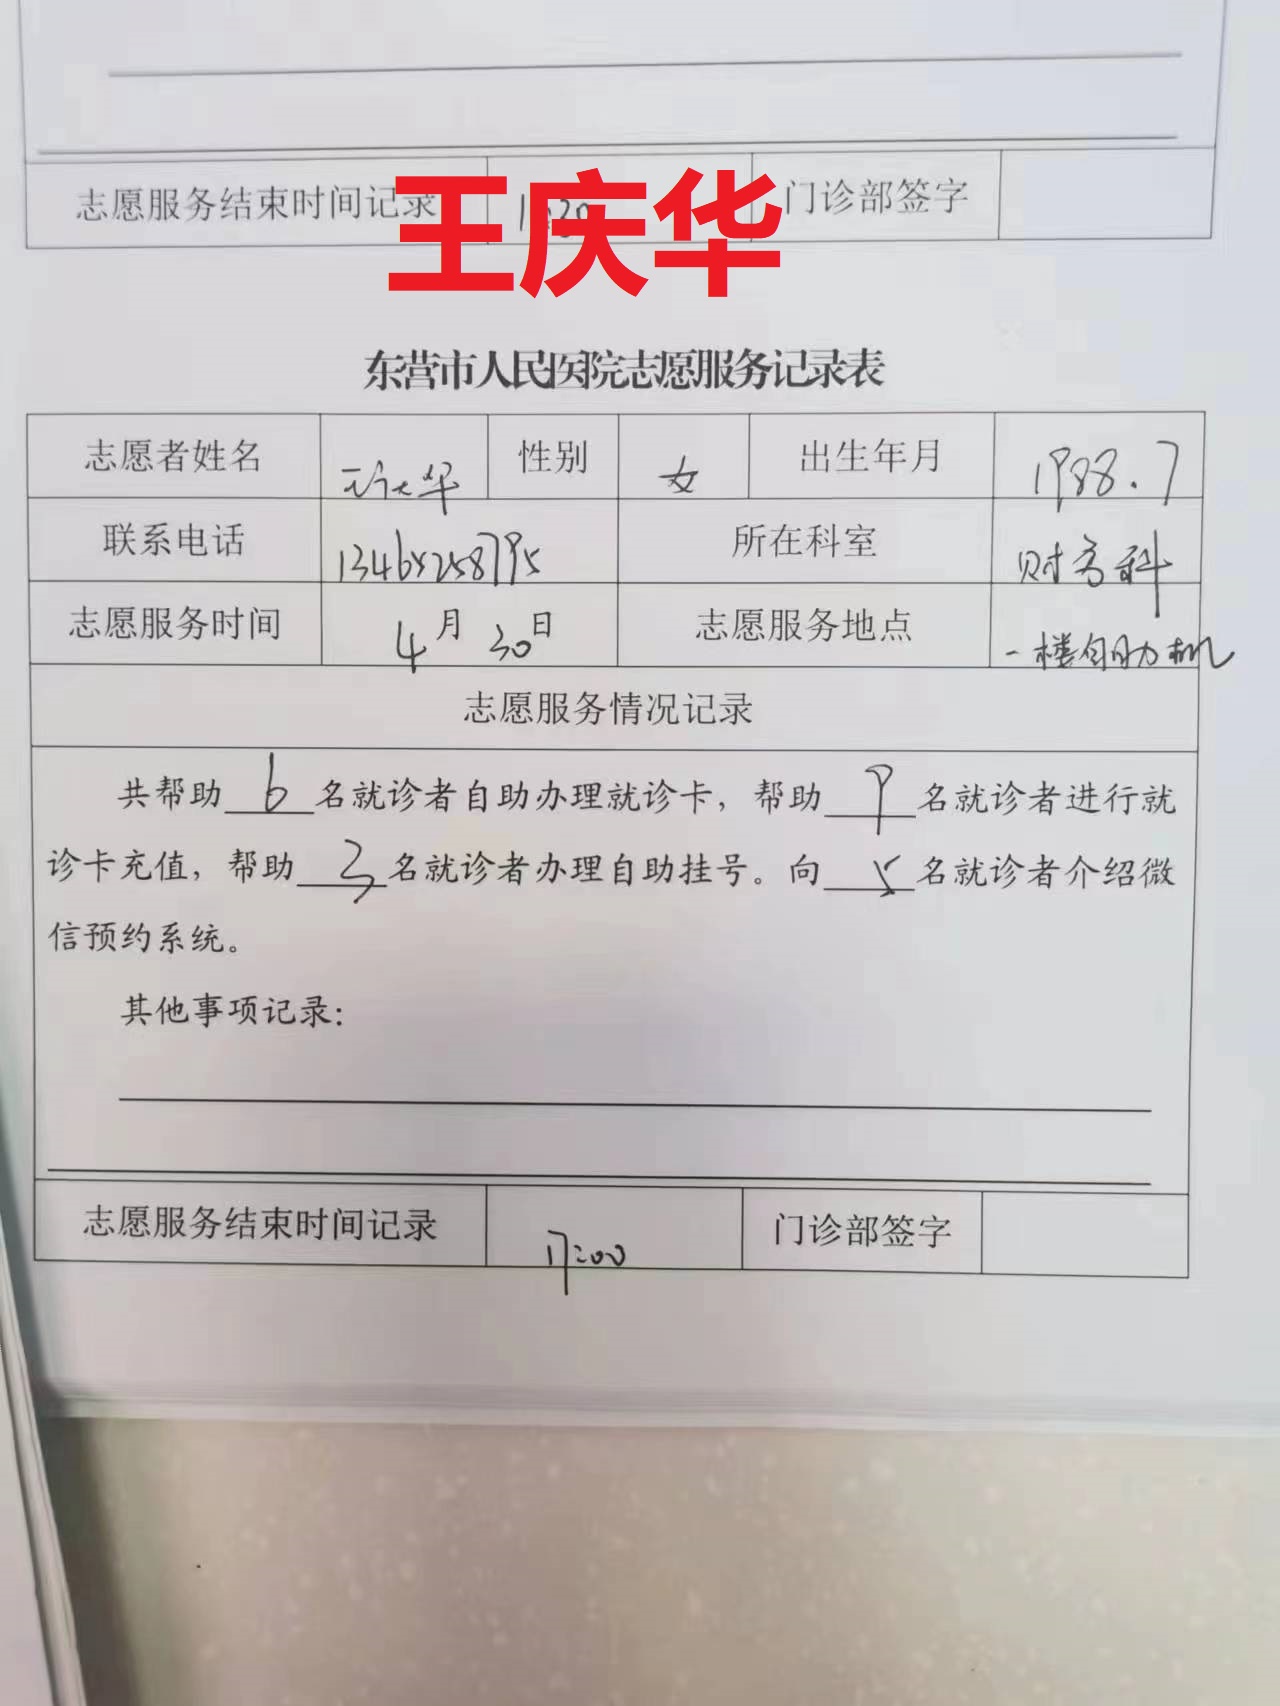 志愿服务结束时间记录 门诊部签字
王庆华
东营市人民医院志愿服务记录表
志愿者姓名 王庆华 性别 女 出生年月 1988.7
联系电话 13465258795 所在科室 财务科
志愿服务时间 4月30日 志愿服务地点 一楼自助机
志愿服务情况记录
共帮助6名就诊者自助办理就诊卡，帮助9名就诊者进行就
诊卡充值，帮助3名就诊者办理自助挂号。向5名就诊者介绍微
信预约系统。
其他事项记录：
志愿服务结束时间记录 17:00 门诊部签字